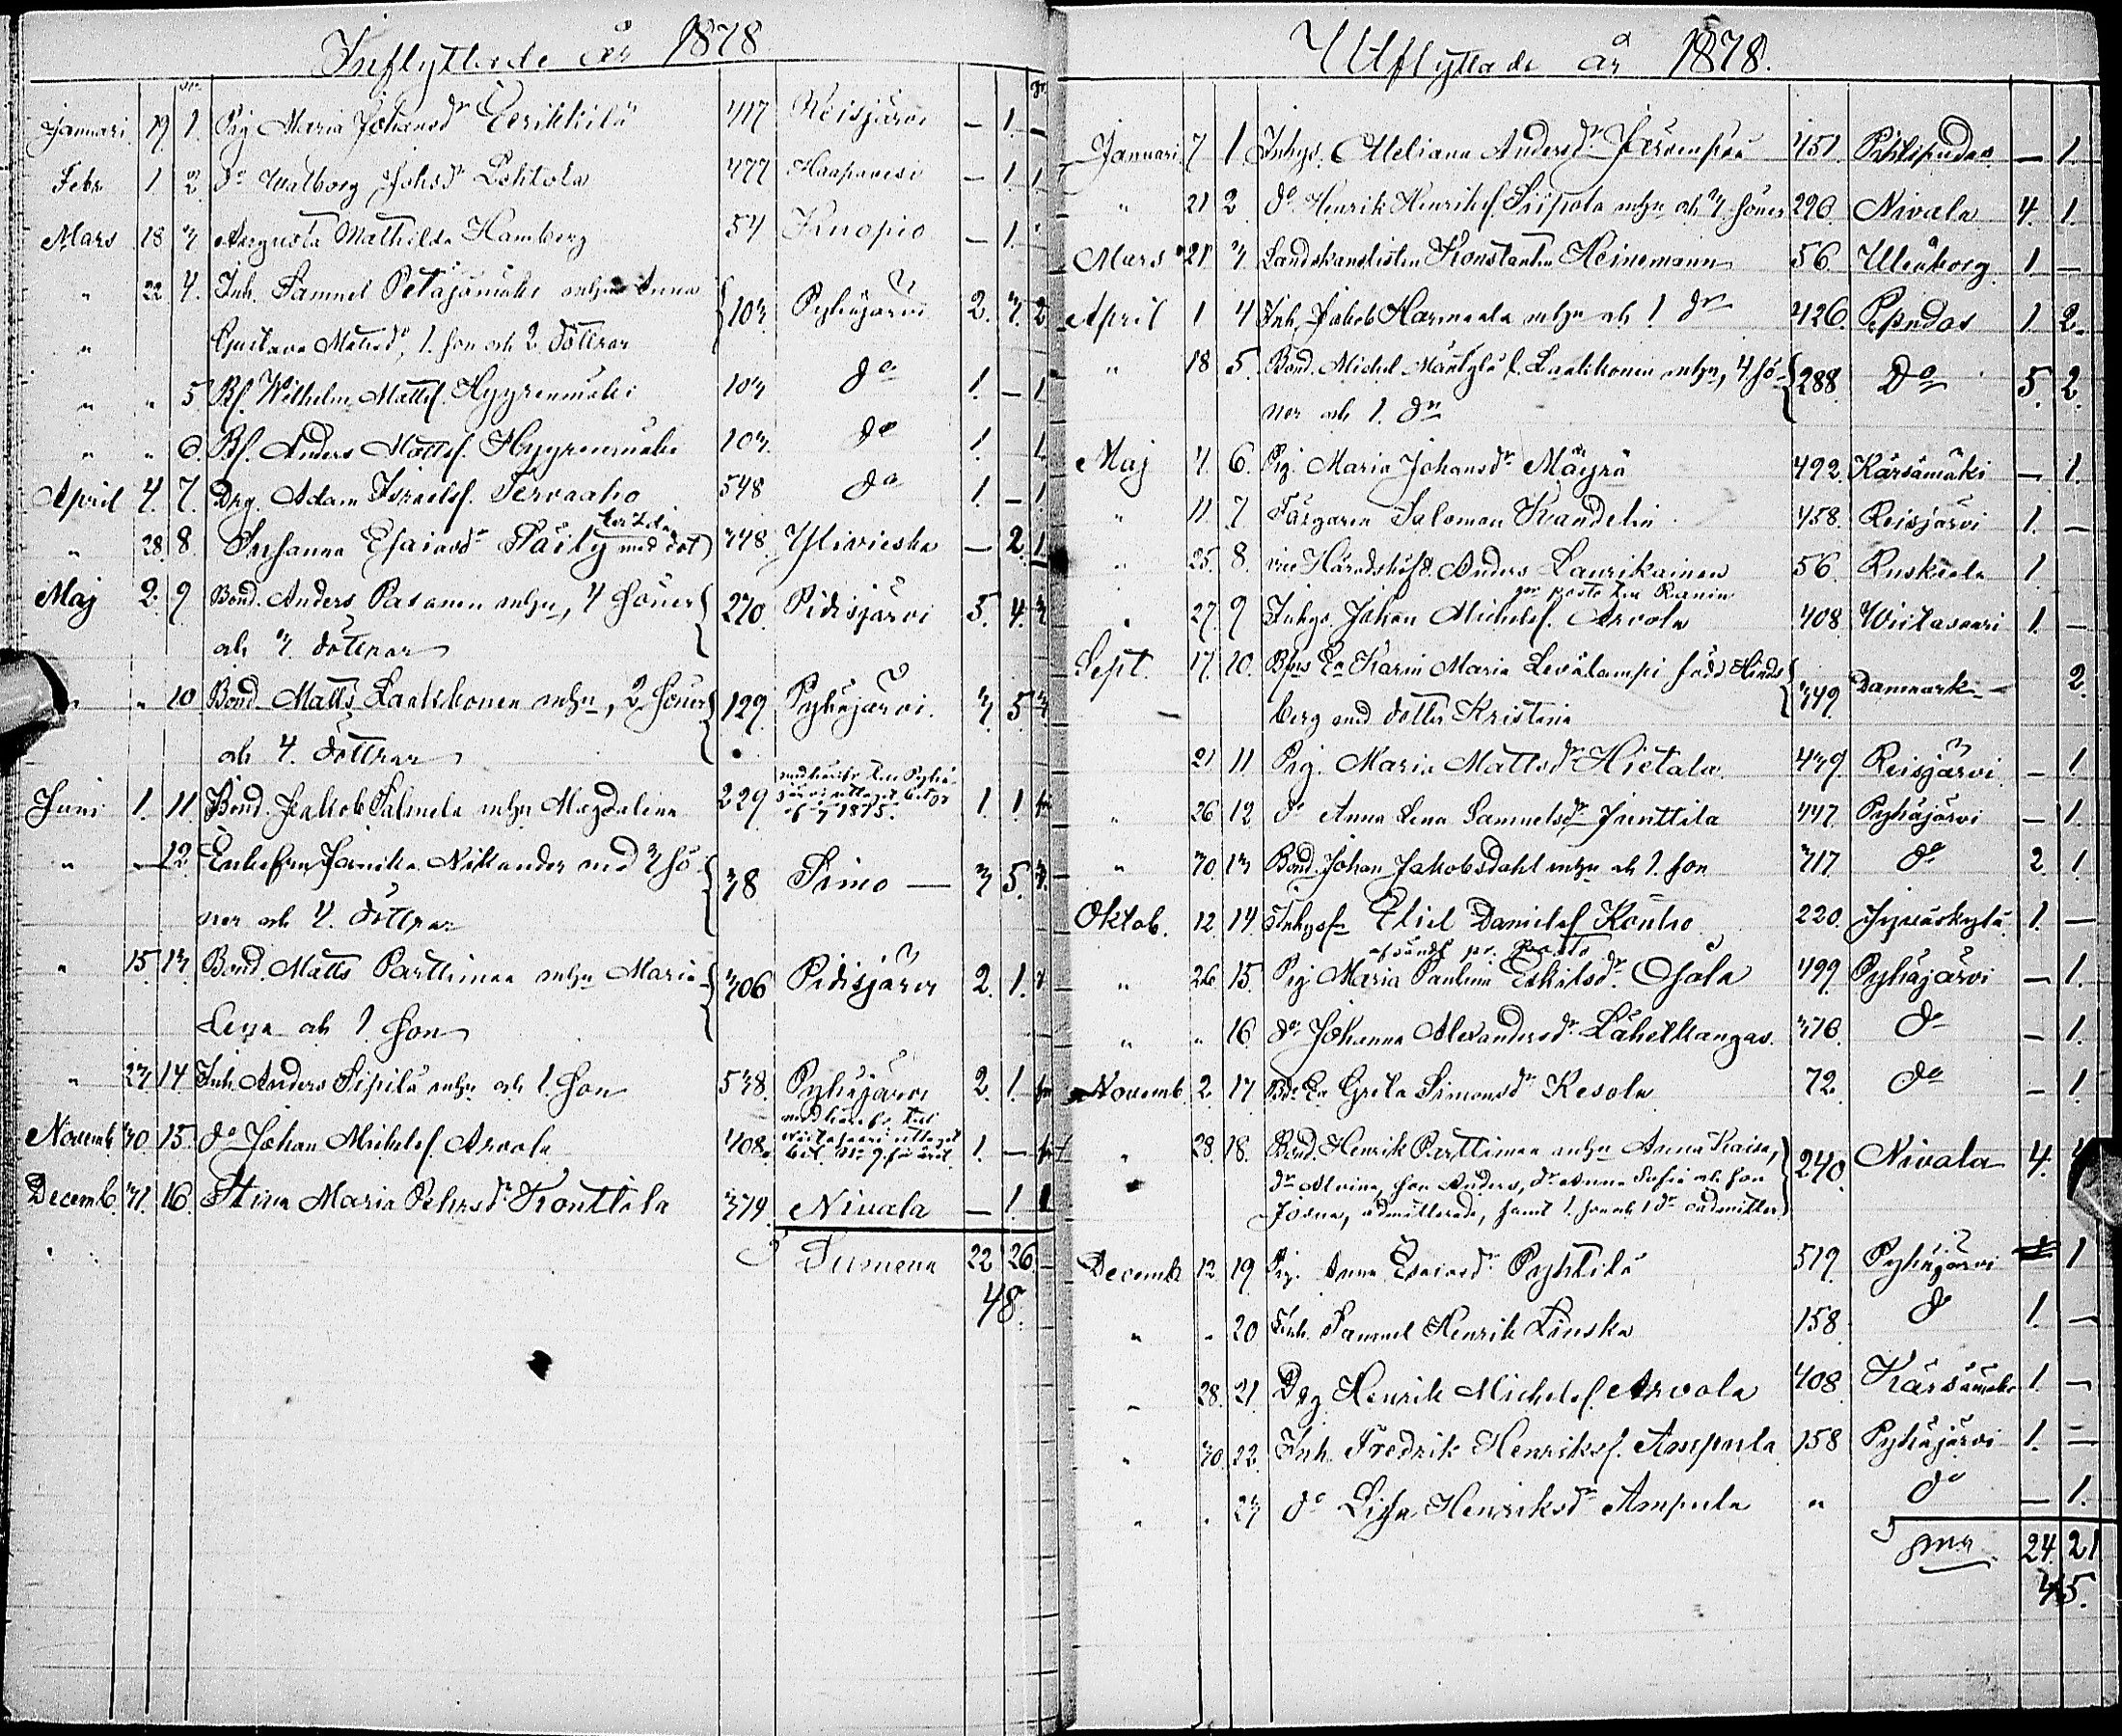 Inflyttade år 1878
Januari 19 1. Pig. Maria Johansdr Eerikkilä 417 Reisjärvi — 1. —
Febr. 1 2. do Walborg Johsdr Lehtola 477 Haapavesi — 1 1
Mars 18 3 Augusta Mathilda Hamberg 54 Kuopio — 1.
" 22 4. Inh. Samuel Petäjämäki mhu Anna 103 Pyhäjärvi 2. 3. 2
" Gustava Matsdr, 1. son och 2 döttrar
" " 5. Bs. Wilhelm Mattss. Hyyrenmäki 103 do 1. — 1.
" " 6. Bs. Anders Mattss. Hyyrenmäki 103. do 1. 1.
April 4. 7. Drg. Adam Israelss. Tervaaho 548 do 1. — 1
" 28. 8 Susanna Esaiasdr Päily med dot 348. Ylivieska — 2. 1
Maj 2. 9 Bond. Anders Pasanen mhu, 4 söner 270. Pidisjärvi 5. 4. 3
och 3. döttrar
" " 10 Bond. Matts Laakkonen mhu, 2 söner 129. Pyhäjärvi. 3 5 3
och 4. döttrar
Juni 1. 11. Bond. Jakob Salmela mhu Magdalena 229 1. 1.
af 1875.
" — 12. Enkefru Jamika Nikander med 3 sö- 38 Simo — 3 5. 3.
ner och 4. döttrar
" 15. 13. Bond. Matts Parttimaa mhu Maria 306 Pidisjärvi 2. 1.
Lena och 1. son
" 23. 14 Inh. Anders Sipilä mhu och 1. son 538. Pyhäjärvi 2. 1.
Novemb. 30. 15. do Johan Michelss. Arvola 408. 1. —
Decemb. 31. 16. Stina Maria Pehrsdr Konttila 379. Nivala — 1. 1
Summa 22 26.
48.
Utflyttade år 1878.
Januari 7 1 Inhys. Meliana Andersdr Järvenpää 451. Pihtipudas — 1.
" 21 2 do Henrik Henrikss. Siipola mhu och 3. söner 296 Nivala 4. 1.
Mars 21 3 Landskanslisten Konstantin Heinemann 56 Uleåborg 1 —
April 1 4 Inh. Jakob Harmaala mhu och 1. dr 426. Pipudas 1. 2.
" 18 5. Bond. Michel Mäntylä l. Laakkonen mhu, 4. sö- 288. Do 5. 2.
ner och 1. dr
Maj 4. 6. Pig. Maria Johansdr Mäyrä 492. Kärsämäki — 1.
" 11. 7 Färgaren Salomon Kandelin 458. Reisjärvi 1. —
" 25. 8. vice Häradshöfd. Anders Laurikainen 56. Ruskeala 1.
" 27. 9 Inhys. Johan Michelss. Arvola 408. Wiitasaari 1. —
Sept. 17. 10. Bss Ea Karin Maria Levälampi född Hinds- 349 Danmark — 2.
berg med dotter Kristina
21 11 Pig. Maria Mattsdr Hietala 439. Reisjärvi — 1.
" 26 12 do Anna Lena Samuelsdr Junttila 447. Pyhäjärvi — 1.
" 30. 13 Bond. Johan Jakobsdahl mhu och 1. son 317 do 2. 1
Oktob. 12. 14. Inhyss. Eliel Danielss Kontio 220. Jyväskylä 1. —
afsändt pr. posto
" 26 15. Pig. Maria Paulina Eskilsdr. Ojala 499 Pyhäjärvi — 1.
" " 16. do Johanna Alexandersdr. Lähetkangas. 376. do — 1.
Novemb. 2. 17 Bdr Ea Greta Simonsdr Kesola 72. do — 1.
" 28. 18. Bond. Henrik Parttimaa mhu Anna Kaisa, 240. Nivala 4.
dr Alvina, son Anders, dr Anna Sofia och son
Josua, admitterade, samt 1. son och 1 dr oadmitter.
Decemb. 12. 19 Pig. Anna Esaiasdr Pyhtilä 519. Pyhäjärvi 1
" " 20 Inh. Samuel Henrik Linska 158 do 1. —
" 28. 21. Drg Henrik Michelss. Arvola 408 Kärsämäki 1. —
" 30. 22. Inh. Fredrik Henrikss. Ampula 158 Pyhäjärvi 1. —
" " 23 do Lisa Henriksdr Ampula " do — 1.
Sma 24. 21
45.